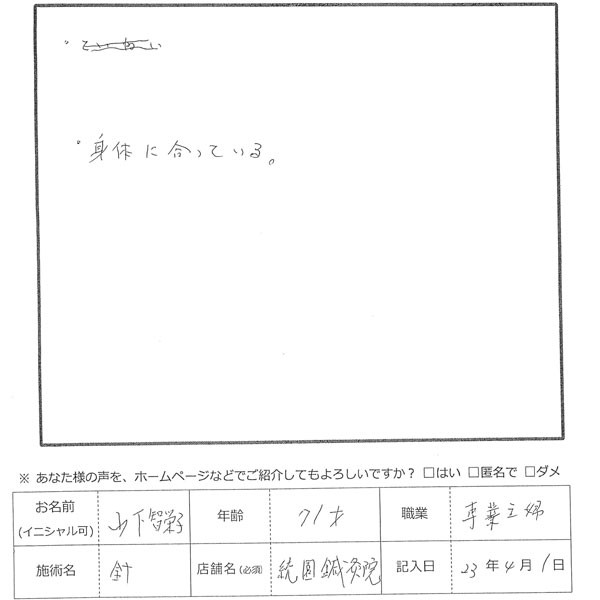 。ていねい
。身体に合っている。
※ あなた様の声を、ホームページなどでご紹介してもよろしいですか？ □はい □匿名で □ダメ
お名前 (イニシャル可) 山下智 年齢 71才 職業 専業主婦
施術名 針 店舗名(必須) 統園鍼灸院 記入日 23年4月1日